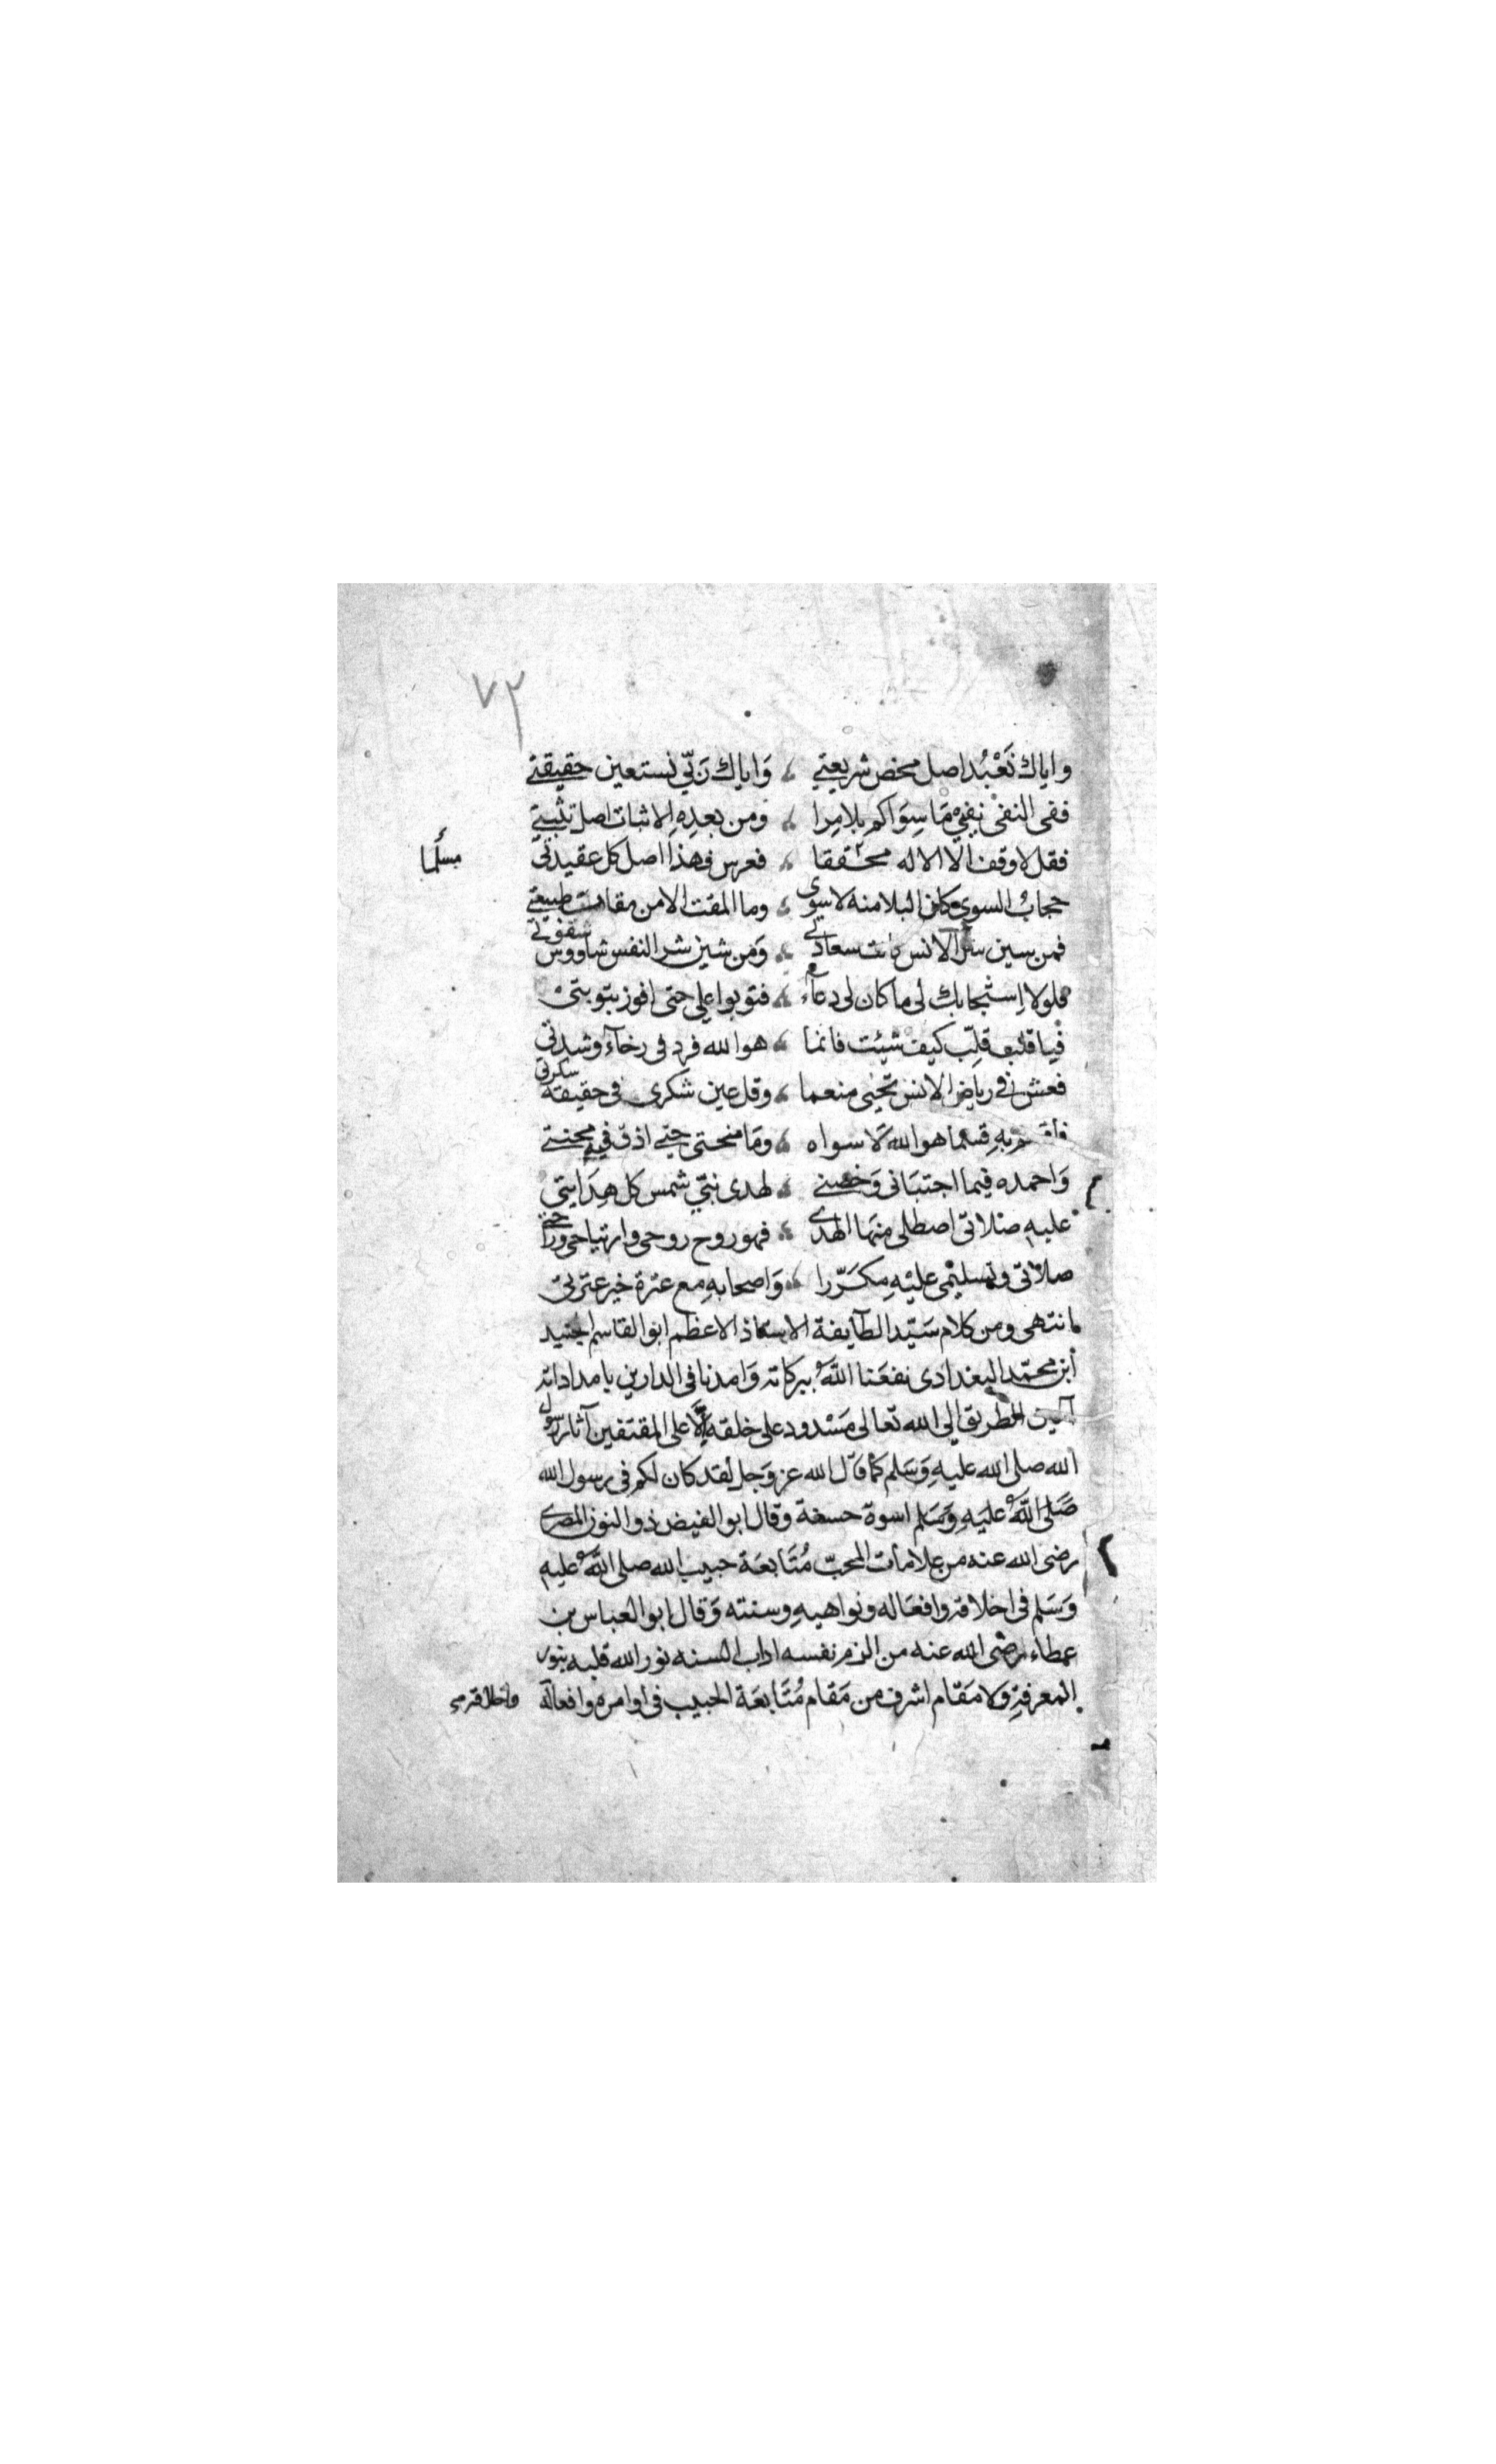 ٧٢
واياك نَعْبُد اصل محض شريعتي ؞ وَاياك رَبّي نستعين حقيقتي
ففى النفى نفيْ مَا سِوَاكم بِلا مِرا ؞ ومن بعدِهِ الاثبات اصل تثبتي
فقل لا وقف الّا الاله محققا ؞ فعرس فهذا اصل كل عقيدتى
مسلما
حجابُ السوى وكان البلا منه لا سوى ؞ وما المقت الا من مقامات طبيعتي
فمن سين سر الانس كانت سعادتى ؞ وَمن شين شر النفس شاووس شقوتى
فلولا اِستجابك لى ما كان لى دعآء ؞ فتوبوا على حتى افوز بتوبتى
فيا قلب قلِّب كيف شيئت فانما ؞ هو الله فرد فى رخآء وشدتى
فعش فى رياض الانس تحيى منعما ؞ وقل عين شكرى فى حقيقة سكرتى
بِهِ قسما هو الله لا سواه ؞ ومَا منحتى حتي اذق فيه محنتي
وَاحمده فيما اجتبَانى وَخصني ؞ لهدى نبيّ شمس كل هِدَايتى
عليهِ صلاتى اصطلى منهَا الهدى ؞ فهو روح روحى وارتياحى وراحتي
صلاتى وتسليمى عليْهِ مكَرّرا ؞ وَاصحابهِ مع عترة خير عترتى
انتهى ومن كلام سَيّد الطآيفة الاستاذ الاعظم ابو القاسم الجنيد
ابن محمّد البغدادى نفعَنا اللهُ ببركاته وَامدنا فى الدارين بامداداته
آمين الطريق الى الله تعالى مَسْدود على خلقه الّا على المقتفين آثار رسول
الله صلى الله عليهِ وَسَلم كما قال الله عز وَجل لقد كان لكم فى رسول الله
صَلى اللهُ عليَهِ وَسَلم اسوة حسنة وقال ابو الفيض ذو النون المصرى
رضى الله عنه من علامات المحبّ مُتَابعَة حبيب الله صلى اللهُ عليهِ
وَسَلم فى اخلاقه وافعَاله ونواهيهِ وسنته وَقال ابو العباس بن
عطاء رضى الله عنه من الزم نفسه اداب السنه نور الله قلبه بنور
المعرفةِ ولا مَقام اشرف من مَقام مُتَابعَة الحبيب فى اوامره وافعاله
واخلاقه